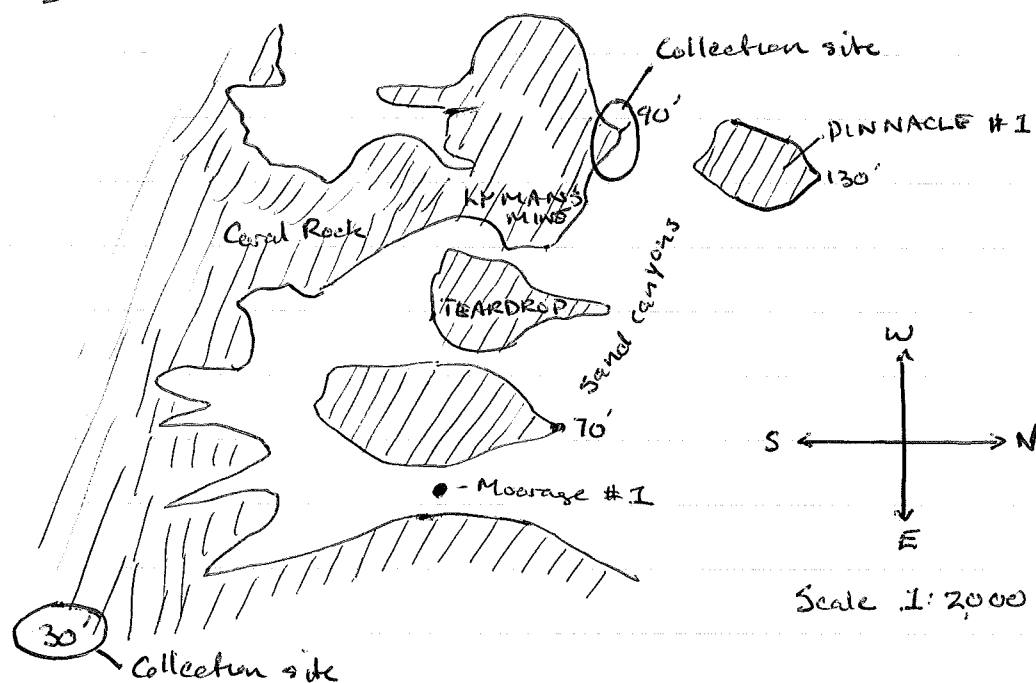 Collection site
90'
PINNACLE #1
130'
KYMANS
MINE
Coral Rock
TEARDROP
Sand canyons
70'
Moorage #1
W
S
N
E
Scale 1:2,000
30'
Collection site